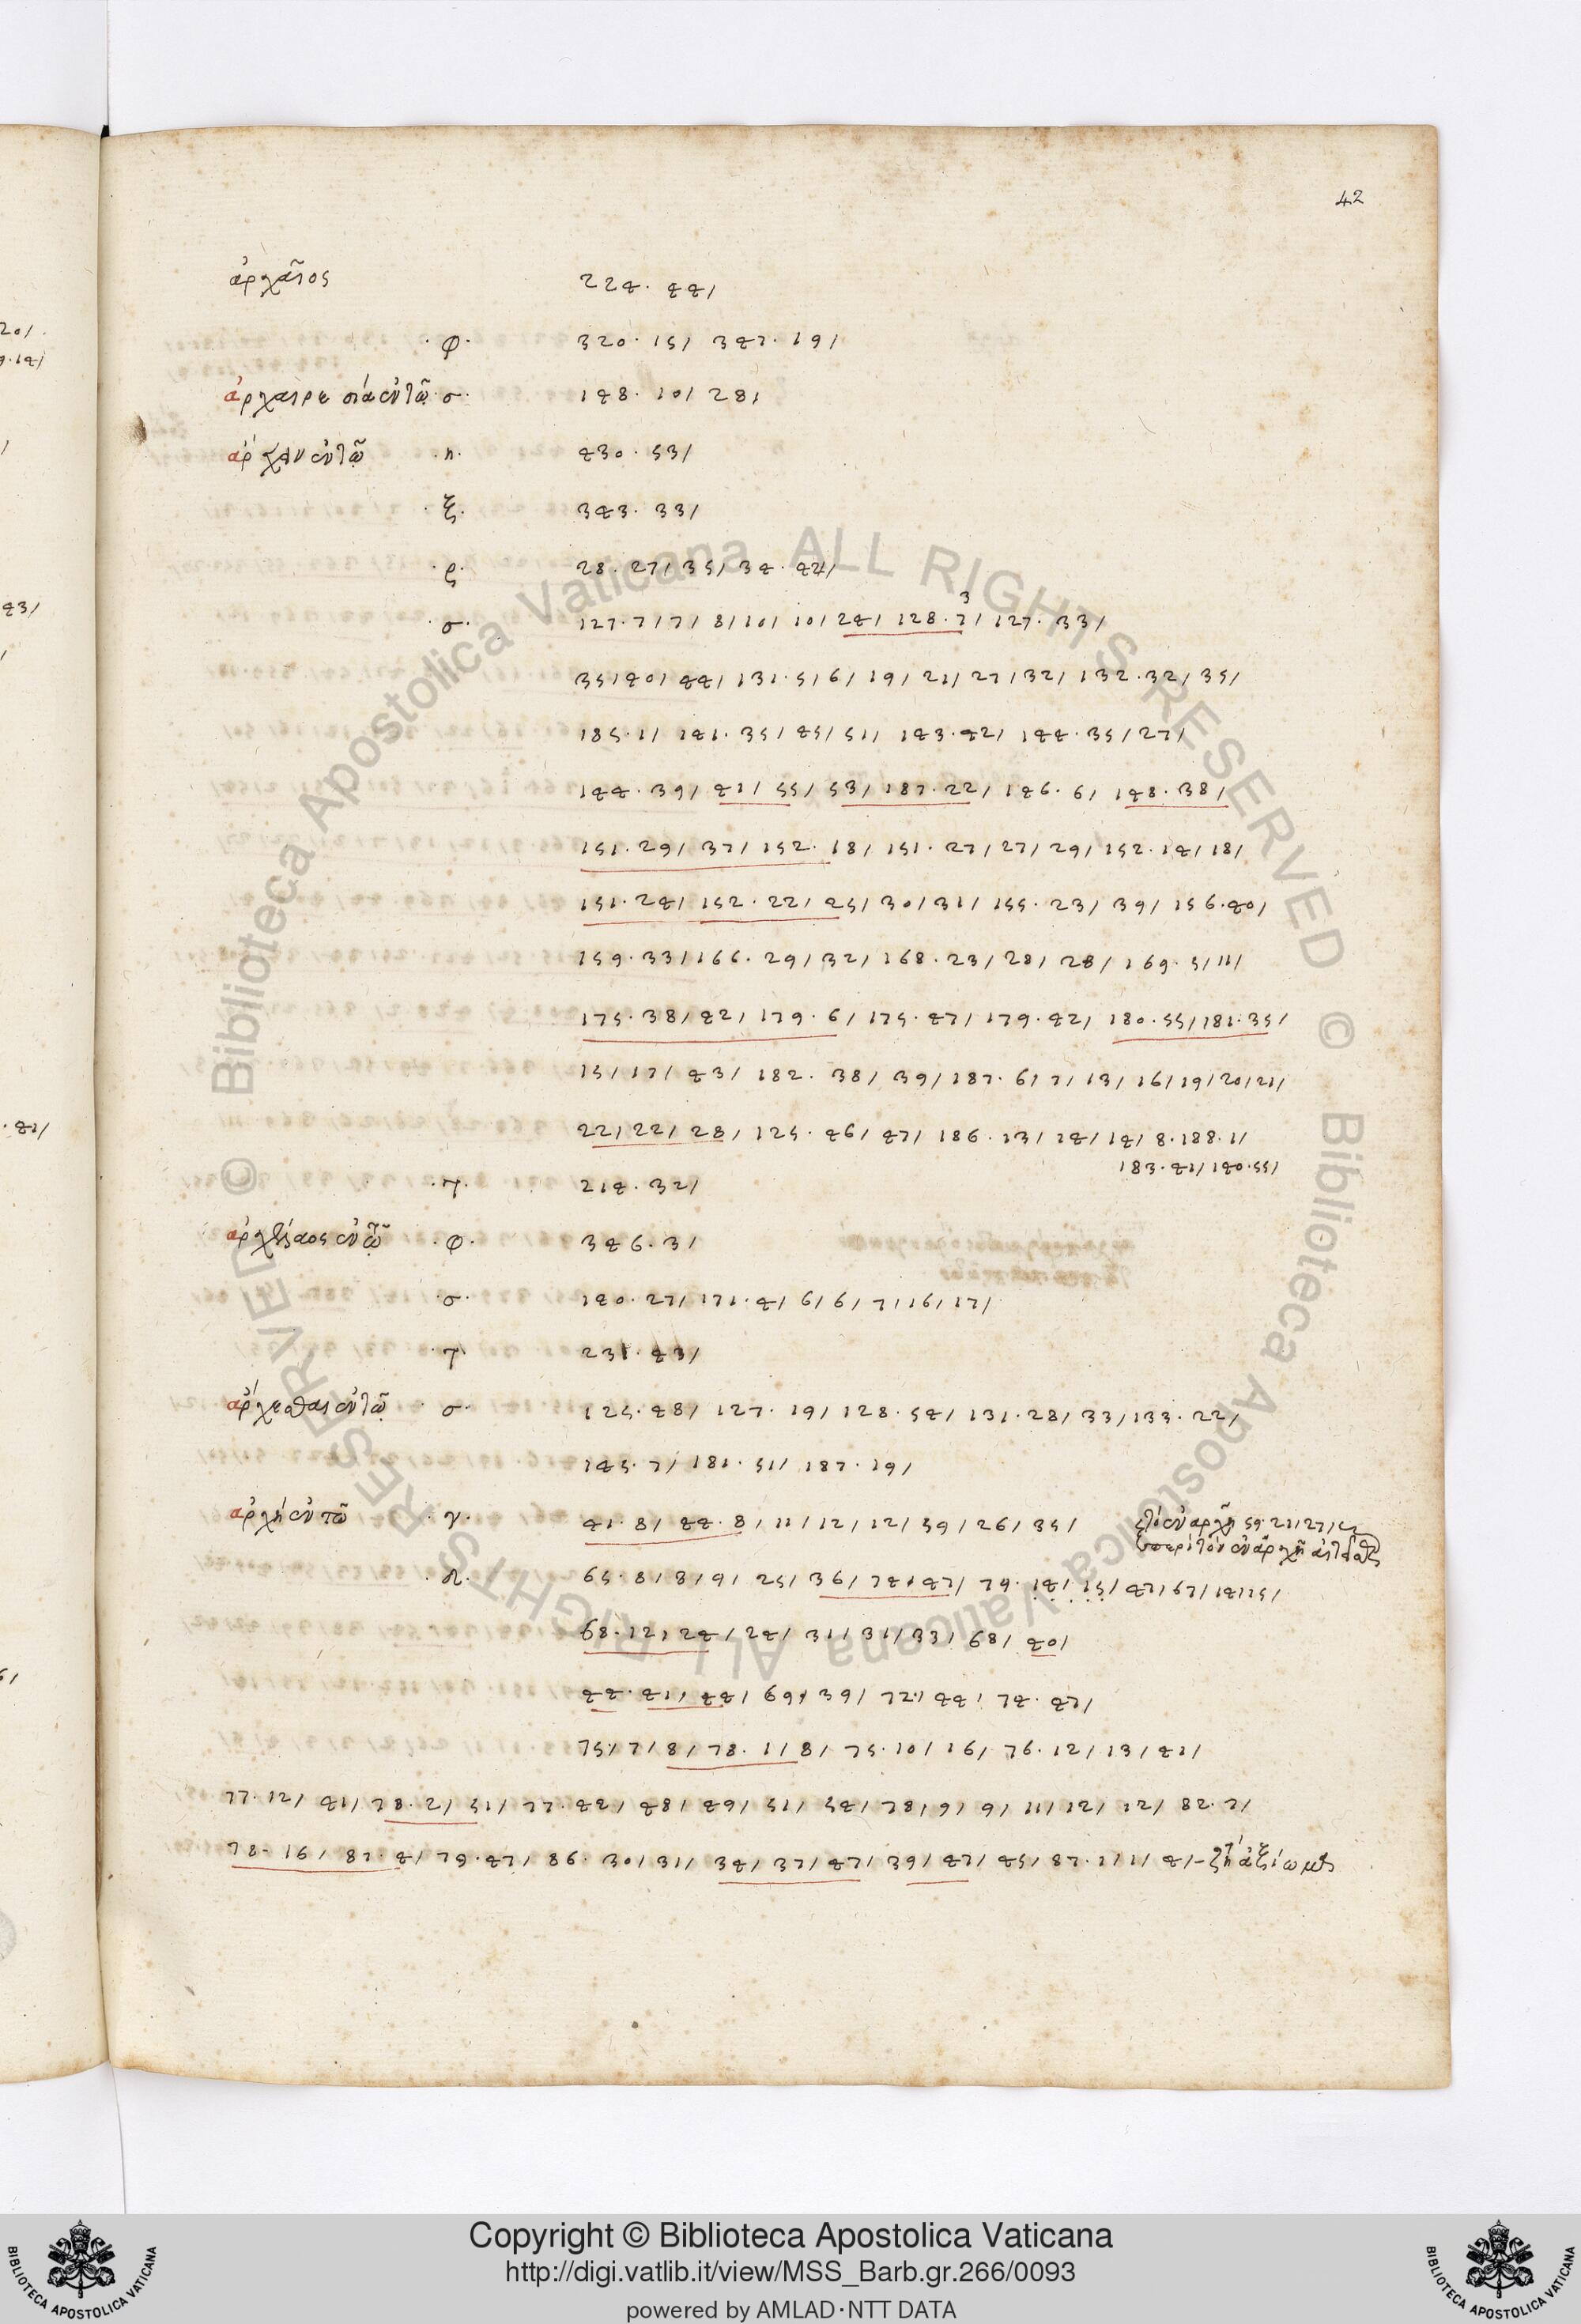 42
ἀρχαῖος 224. 44/
·φ· 320. 15/ 347. 19/
ἀρχαιρεσία ἐν τῷ ·σ· 148. 10/ 28/
ἄρχειν ἐν τῷ ·π· 430. 53/
·ξ· 343. 33/
·ρ· 28. 27/ 35/ 34. 44/
·σ· 127. 7/ 7/ 8/ 10/ 10/ 24/ 128. 7/ 127. 33/
3
35/ 40/ 44/ 131. 5/ 6/ 19/ 21/ 27/ 32/ 132. 32/ 35/
185. 1/ 141. 35/ 45/ 51/ 143. 42/ 144. 35/ 27/
144. 39/ 41/ 55/ 53/ 187. 22/ 146. 6/ 148. 38/
151. 29/ 37/ 152. 18/ 151. 27/ 27/ 29/ 152. 14/ 18/
151. 24/ 152. 22/ 25/ 30/ 31/ 155. 23/ 39/ 156. 40/
159. 33/ 166. 29/ 32/ 168. 23/ 28/ 28/ 169. 5/ 11/
175. 38/ 42/ 179. 6/ 175. 47/ 179. 42/ 180. 55/ 181. 35/
15/ 17/ 43/ 182. 38/ 39/ 187. 6/ 7/ 13/ 16/ 19/ 20/ 21/
22/ 22/ 28/ 125. 46/ 47/ 186. 13/ 14/ 14/ 8. 188. 1/
183. 41/ 140. 55/
·τ· 214. 32/
ἐν τῷ ·φ· 346. 3/
·σ· 140. 27/ 171. 4/ 6/ 6/ 7/ 16/ 17/
·τ· 231. 43/
ἄρχεσθαι ἐν τῷ ·σ· 125. 48/ 127. 19/ 128. 54/ 131. 28/ 33/ 133. 22/
145. 7/ 181. 51/ 187. 19/
ἀρχή ἐν τῷ ·γ· 41. 8/ 44. 8/ 11/ 12/ 12/ 59/ 26/ 35/
ἐν ἀρχῇ 59. 21/ 27/
ἐν ἀρχῇ
·π· 65. 8/ 8/ 9/ 25/ 36/ 74. 47/ 79. 14/ 15/ 47/ 67/ 14/ 15/
68. 12/ 24/ 24/ 31/ 31/ 33/ 68/ 40/
44. 41/ 44/ 69/ 39/ 72/ 44/ 74. 47/
75/ 7/ 8/ 78. 1/ 8/ 75. 10/ 16/ 76. 12/ 13/ 41/
77. 12/ 41/ 78. 2/ 51/ 77. 42/ 48/ 49/ 51/ 54/ 78/ 9/ 9/ 11/ 12/ 12/ 82. 7/
78. 16/ 87. 4/ 79. 47/ 86. 30/ 31/ 34/ 37/ 47/ 39/ 47/ 45/ 87. 1/ 1/ 4/
Copyright © Biblioteca Apostolica Vaticana
http://digi.vatlib.it/view/MSS_Barb.gr.266/0093
powered by AMLAD·NTT DATA